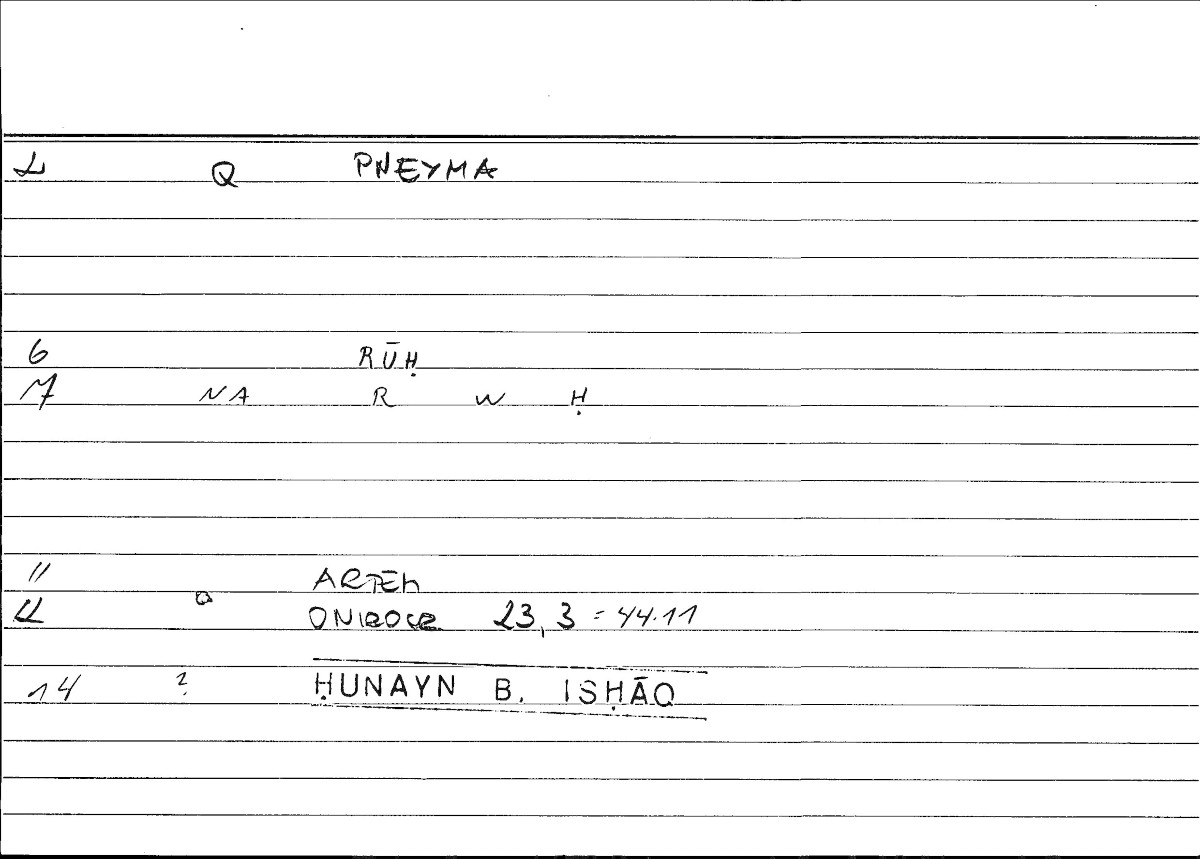 2 Q PNEYMA
6 RŪḤ
7 NA R W Ḥ
11 ARTEM
12 O ONIROCR 23,3 = 44.11
14 ? ḤUNAYN B. ISḤĀQ